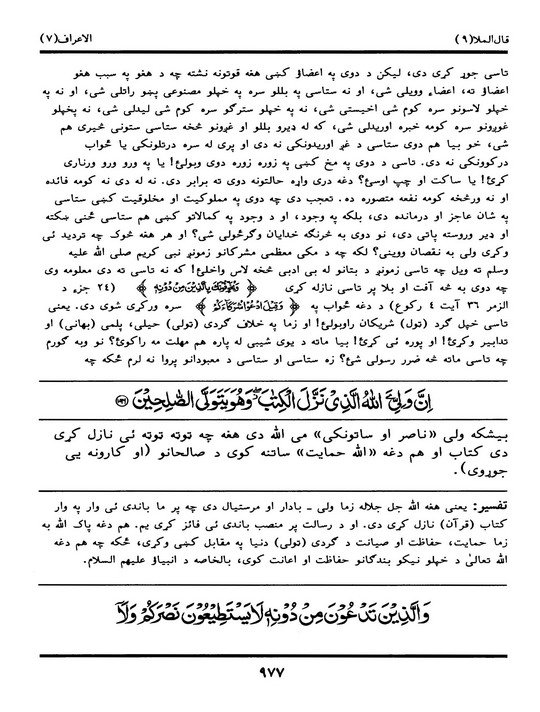 قال الملا(٩) الاعراف(٧)
تاسی جوړ کړی دی، لیکن د دوی په اعضاؤ کښی هغه قوتونه نشته چه د هغو په سبب هغو
اعضاؤ ته، اعضاء وویلی شی، او نه ستاسی په بللو سره په خپلو مصنوعی پښو راتلی شی، او نه په
خپلو لاسونو سره کوم شی اخیستی شی، نه په خپلو سترګو سره کوم شی لیدلی شی، نه پخپلو
غوږونو سره کومه خبره اوریدلی شی، که له ډیرو بللو او غږونو څخه ستاسی ستونی څیری هم
شی، خو بیا هم دوی ستاسی د غږ اوریدونکی نه دی او پری له سره درتلونکی یا ځواب
درکوونکی نه دی. تاسی د دوی په مخ کښی په زوره زوره دوی وبولئ! یا په ورو ورو ورناری
کړئ! یا ساکت او چپ اوسئ؟ دغه دری واړه حالتونه دوی ته برابر دی. نه له دی نه کومه فائده
او نه ورڅخه کومه نفعه متصوره ده. تعجب دی چه دوی په مملوکیت او مخلوقیت کښی ستاسی
په شان عاجز او درمانده دی، بلکه په وجود، او د وجود په کمالاتو کښی هم ستاسی ځنی ښکته
او ډیر وروسته پاتی دی، نو دوی به څرنګه خدایان وګرځولی شی؟ او هر هغه څوک چه تردید ئی
وکړی ولی به نقصان وویني؟ لکه چه د مکی معظمی مشرکانو زمونږ نبی کریم صلی الله علیه
وسلم ته ویل چه تاسی زمونږ د بتانو له بی ادبی څخه لاس واخلئ! که نه تاسی ته دی معلومه وی
چه دوی به څه آفت او بلا پر تاسی نازله کړی ﴿ وَيُخَوِّفُونَكَ بِالَّذِينَ مِنْ دُونِهِ ﴾ (٢٤ جزء د
الزمر ٣٦ آیت ٤ رکوع) د دغه ځواب په ﴿ وَقِيلَ ادْعُوا شُرَكَاءَكُمْ ﴾ سره ورکړی شوی دی. یعنی
تاسی خپل ګرد (تول) شریکان راوبولئ! او زما په خلاف ګردی (تولی) حیلی، پلمی (بهانی) او
تدابیر وکړئ! او پوره ئی کړئ! بیا ماته د یوی شیبی له پاره هم مهلت مه راکوئ؟ نو وبه ګورم
چه تاسی ماته څه ضرر رسولی شئ؟ زه ستاسی او ستاسی د معبودانو پروا نه لرم ځکه چه
اِنَّ وَلِیِّ اللّٰهُ الَّذِیْ نَزَّلَ الْكِتٰبَ ۖ وَهُوَ یَتَوَلَّی الصّٰلِحِیْنَ ﴿١٩٦﴾
بیشکه ولی «ناصر او ساتونکی» می الله دی هغه چه ټوټه ټوټه ئی نازل کړی
دی کتاب او هم دغه «الله حمایت» ساتنه کوی د صالحانو (او کارونه یی
جوړوی).
تفسیر: یعنی هغه الله جل جلاله زما ولی ـ بادار او مرستیال دی چه پر ما باندی ئی وار په وار
کتاب (قرآن) نازل کړی دی. او د رسالت پر منصب باندی ئی فائز کړی یم. هم دغه پاک الله به
زما حمایت، حفاظت او صیانت د ګردی (تولی) دنیا په مقابل کښی وکړی، ځکه چه هم دغه
الله تعالیٰ د خپلو نیکو بندګانو حفاظت او اعانت کوی، بالخاصه د انبیاؤ علیهم السلام.
وَالَّذِیْنَ تَدْعُوْنَ مِنْ دُوْنِهٖ لَا یَسْتَطِیْعُوْنَ نَصْرَكُمْ وَلَاۤ
٩٧٧